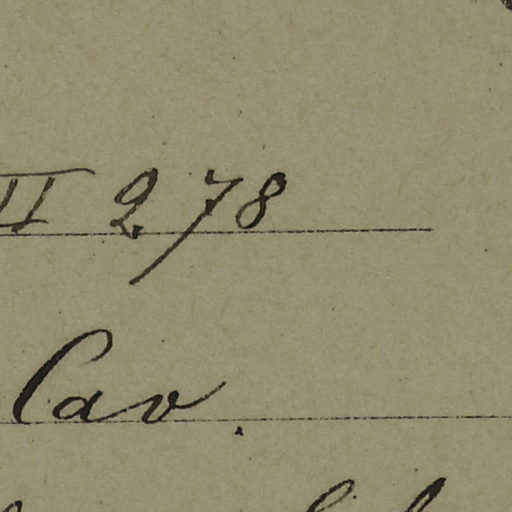 II 278
Cav.